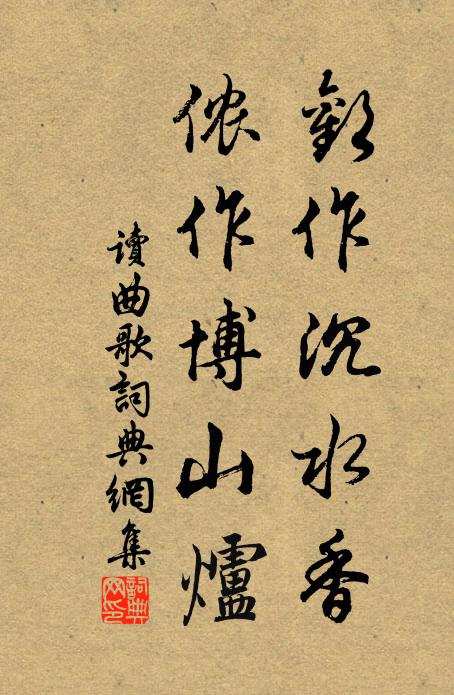 歡作沉水香
侬作博山爐
讀曲歌詞典網集
詞典网印